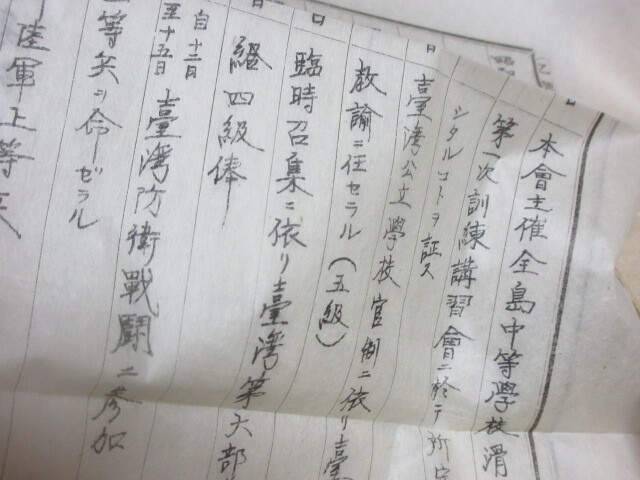 本會主催全島中等學校滑
第一次訓練講習會ニ於テ所定
シタルコトヲ証ス
臺灣公立學校官制ニ依リ臺
教諭ニ任セラル(五級)
臨時召集ニ依リ臺灣第六部
給四級俸
自十二日
至十五日
臺灣防衛戰鬪ニ參加
等兵ヲ命ゼラル
陸軍上等兵